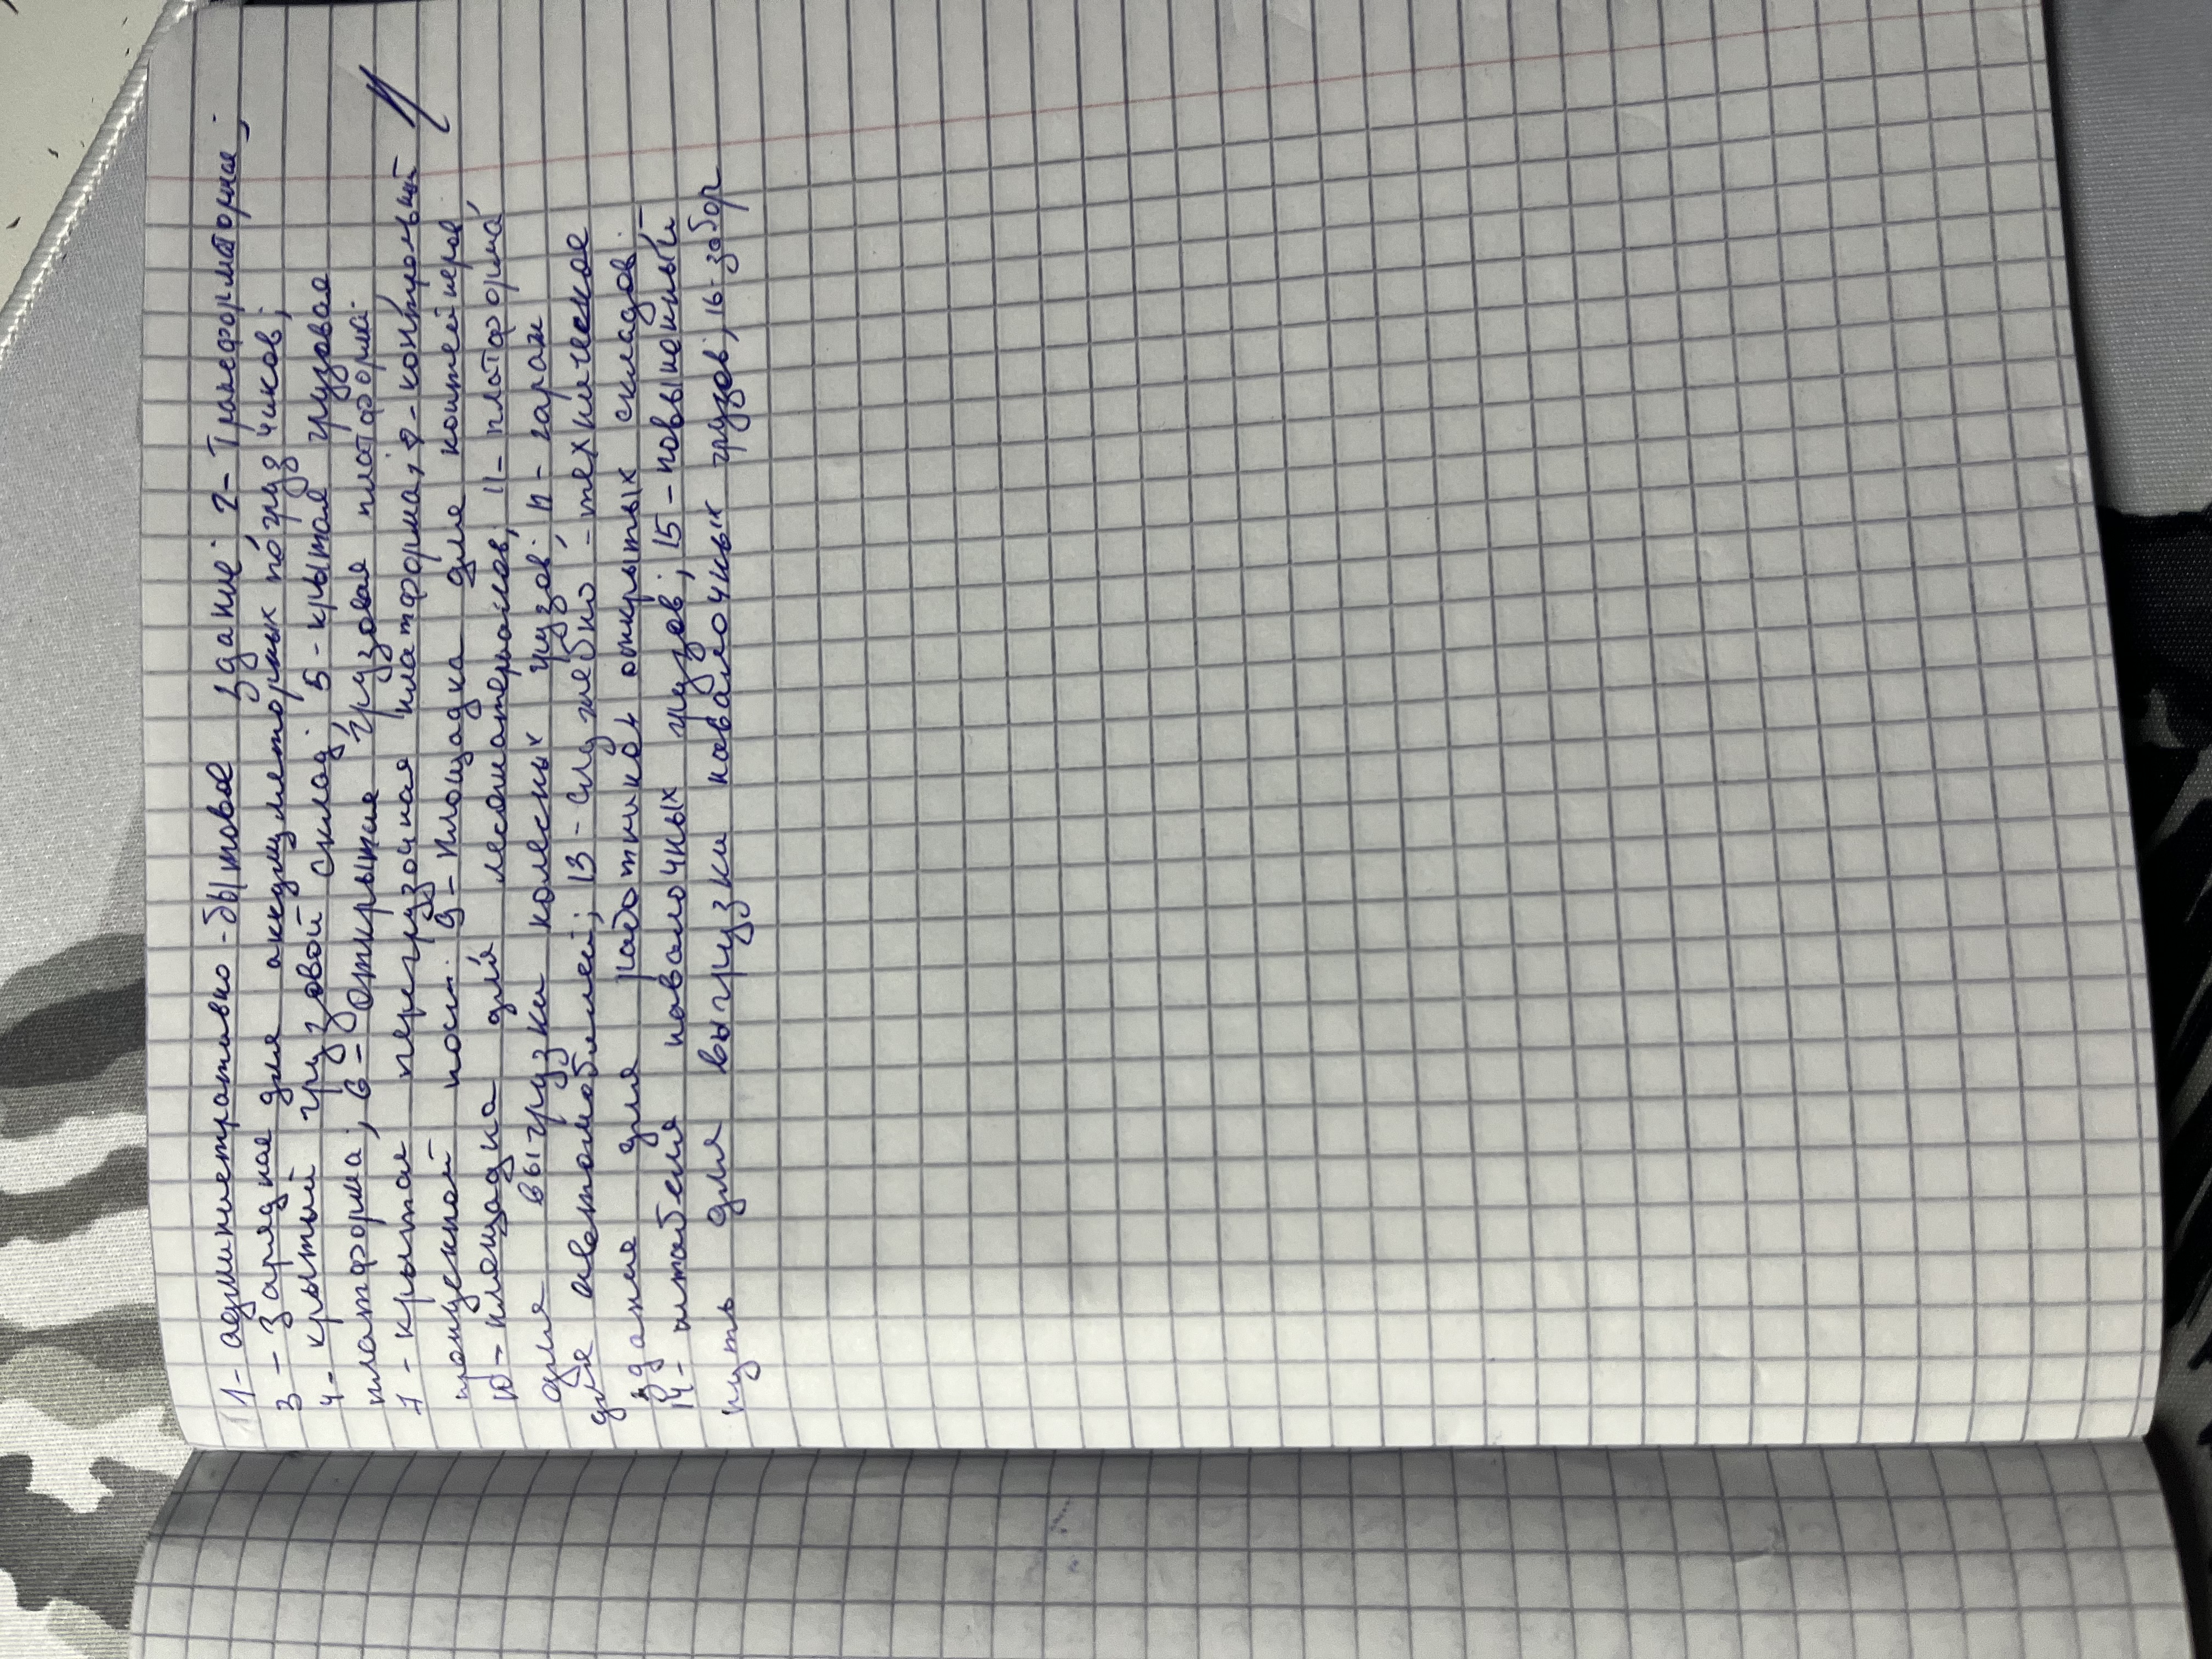 1- административно-бытовое здание; 2- Трансформаторная;
3 - Зарядная для аккумуляторных погрузчиков;
4- крытый грузовой склад; 5- крытая грузовая
платформа; 6- Открытая грузовая платформа;
7 - крытая перегрузочная платформа; 8- контрольный
пропускной пост; 9- площадка для контейнеров
10- площадка для лесоматериалов; 11- платформа
для выгрузки колесных грузов; 12- гараж
для автомобилей; 13- служебно-техническое
здания для работников открытых складов;
14- штабеля навалочных грузов; 15- повышенный
путь для выгрузки навалочных грузов; 16- забор